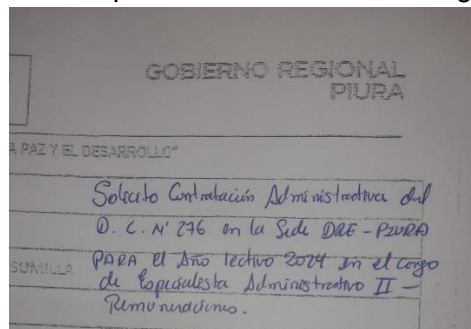 GOBIERNO REGIONAL
PIURA
A PAZ Y EL DESARROLLO"
Solicito Contratación Administrativa del
D. C. N° 276 en la Sede DRE - PIURA
SUMILLA PARA el Año lectivo 2024 en el cargo
de Especialista Administrativo II -
Remuneraciones.